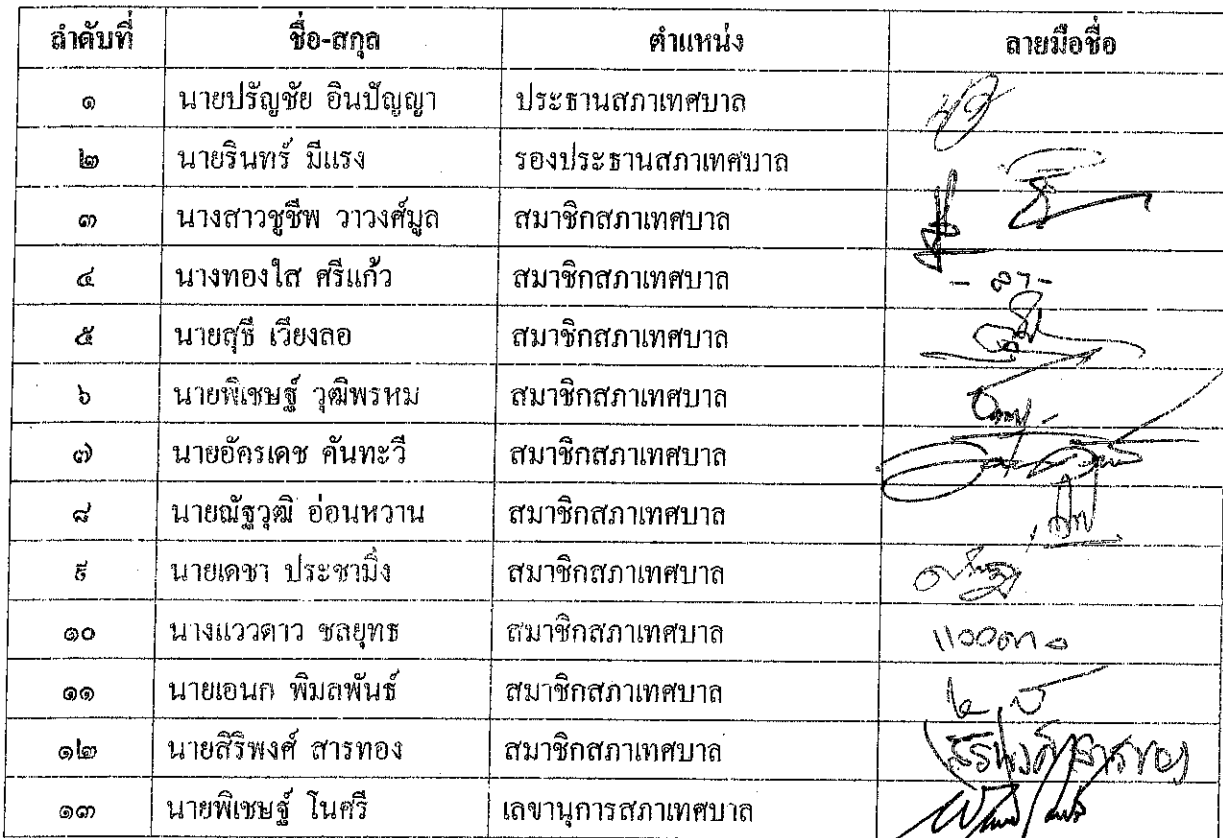 ลำดับที่ ชื่อ-สกุล ตำแหน่ง ลายมือชื่อ
๑ นายปรัญชัย อินปัญญา ประธานสภาเทศบาล
๒ นายรินทร์ มีแรง รองประธานสภาเทศบาล
๓ นางสาวชูชีพ วาวงศ์มูล สมาชิกสภาเทศบาล
๔ นางทองใส ศรีแก้ว สมาชิกสภาเทศบาล - ลา -
๕ นายสุธี เวียงลอ สมาชิกสภาเทศบาล
๖ นายพิเชษฐ์ วุฒิพรหม สมาชิกสภาเทศบาล
๗ นายอัครเดช คันทะวี สมาชิกสภาเทศบาล
๘ นายณัฐวุฒิ อ่อนหวาน สมาชิกสภาเทศบาล
๙ นายเดชา ประชามิ่ง สมาชิกสภาเทศบาล
๑๐ นางแววดาว ชลยุทธ สมาชิกสภาเทศบาล แววดาว
๑๑ นายเอนก พิมลพันธ์ สมาชิกสภาเทศบาล
๑๒ นายสิริพงศ์ สารทอง สมาชิกสภาเทศบาล สิริพงศ์ สารทอง
๑๓ นายพิเชษฐ์ โนศรี เลขานุการสภาเทศบาล